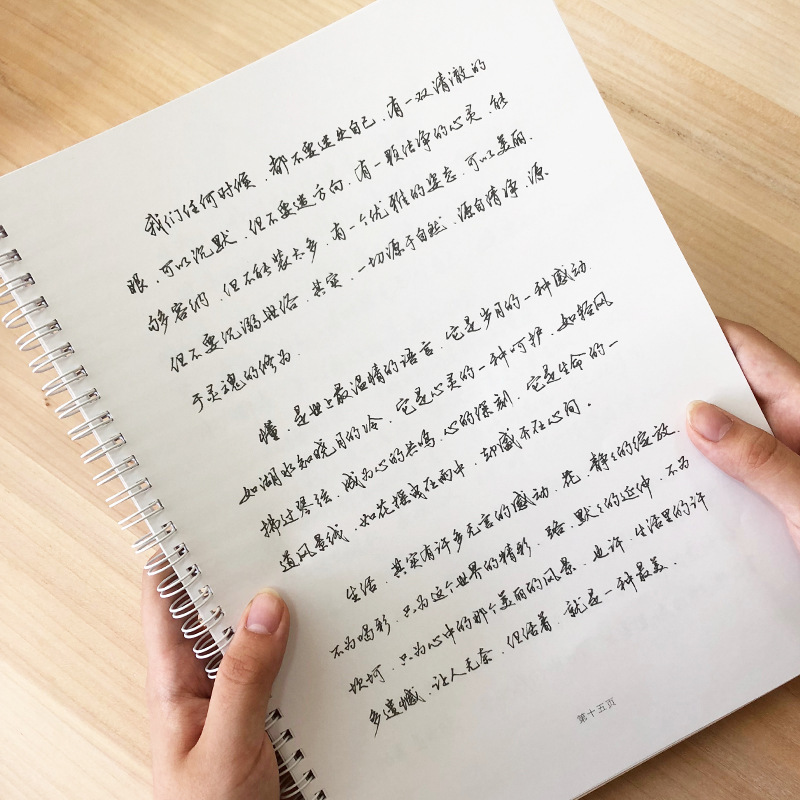 我们任何时候，都不要迷失自己，有一双清澈的
眼，可以沉默，但不要迷方向，有一颗洁净的心灵，能
够容纳，但不能装太多，有一个优雅的姿态，可以美丽，
但不要沉溺世俗，其实，一切源于自然，源自清净，源
于灵魂的修为。
懂，是世上最温情的语言，它是岁月的一种感动，
如湖水知晓月的冷，它是心灵的一种呵护，如轻风
拂过琴弦，成为心的共鸣，心的深刻，它是生命的一
道风景线，如花摇曳在雨中，却盛开在心间。
生活，其实有许多无言的感动，花，静静的绽放，
不为喝彩，只为这个世界的精彩，路，默默的延伸，不为
坎坷，只为心中的那个美丽的风景，也许，生活里的许
多遗憾，让人无奈，但活着，就是一种最美。
第十五页